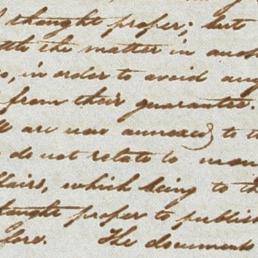 thought proper; but
the matter in ano
, in order to avoid any
from their guarantee.
are now annexed to t
do not relate to man
ffairs, which being to th
thought proper to publis
fore. The documents